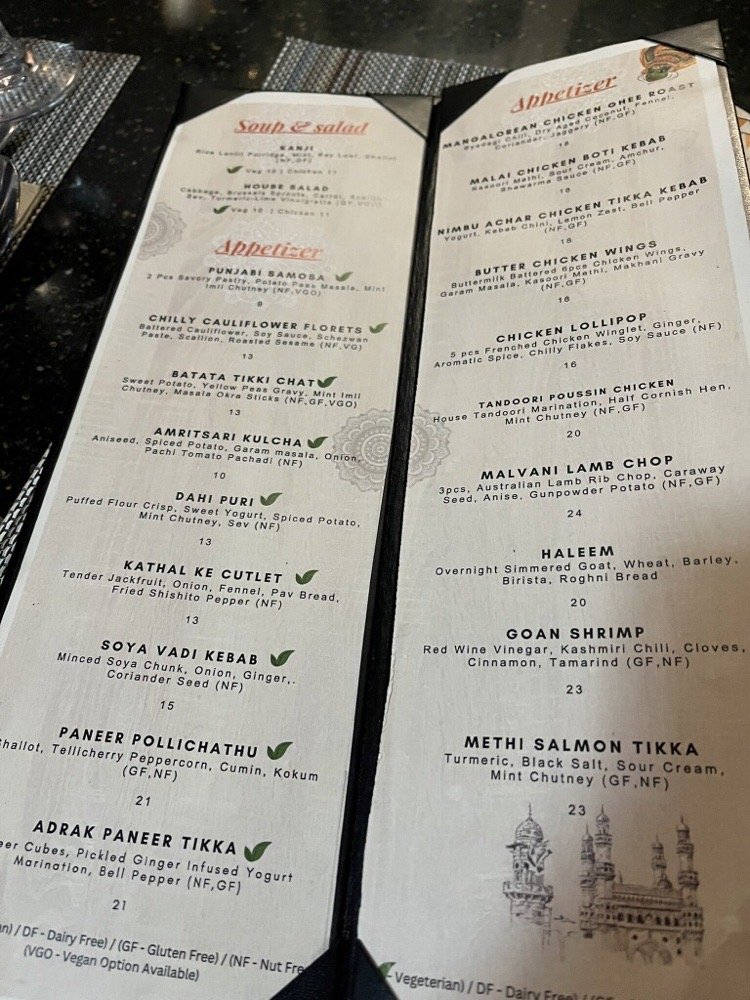 Soup & salad
KANJI
Rice Lentil Porridge, Mint, Bay Leaf, Shallot
(NF,GF)
Veg 10 | Chicken 11
HOUSE SALAD
Cabbage, Brussels Sprouts, Carrot,
Sev, Turmeric-Lime Vinaigrette
Veg 10 | Chicken 11
Appetizer
PUNJABI SAMOSA
2 Pcs Savory Pastry, Potato Peas Masala, Mint
Imli Chutney (NF,VGO)
9
CHILLY CAULIFLOWER FLORETS
Battered Cauliflower, Soy Sauce, Schezwan
Paste, Scallion, Roasted Sesame (NF,VG)
13
BATATA TIKKI CHAT
Sweet Potato, Yellow Peas Gravy, Mint Imli
Chutney, Masala Okra Sticks (NF,GF,VGO)
13
AMRITSARI KULCHA
Aniseed, Spiced Potato, Garam masala, Onion,
Pachi Tomato Pachadi (NF)
10
DAHI PURI
Puffed Flour Crisp, Sweet Yogurt, Spiced Potato,
Mint Chutney, Sev (NF)
13
KATHAL KE CUTLET
Tender Jackfruit, Onion, Fennel, Pav Bread,
Fried Shishito Pepper (NF)
13
SOYA VADI KEBAB
Minced Soya Chunk, Onion, Ginger,.
Coriander Seed (NF)
15
PANEER POLLICHATHU
Shallot, Tellicherry Peppercorn, Cumin, Kokum
(GF,NF)
21
ADRAK PANEER TIKKA
Cubes, Pickled Ginger Infused Yogurt
Marination, Bell Pepper (NF,GF)
21
/ DF - Dairy Free) / (GF - Gluten Free) / (NF - Nut Fre
(VGO - Vegan Option Available)
Appetizer
MANGALOREAN CHICKEN GHEE ROAST
Byadagi Chili, Dry Aged Coconut, Fennel,
Coriander, Jaggery (NF,GF)
18
MALAI CHICKEN BOTI KEBAB
Kasoori Methi, Sour Cream, Amchur,
Shawarma Sauce (NF,GF)
NIMBU ACHAR CHICKEN TIKKA KEBAB
Yogurt, Kebab Chini, Lemon Zest, Bell Pepper
(NF,GF)
18
BUTTER CHICKEN WINGS
Buttermilk Battered 6pcs Chicken Wings,
Garam Masala, Kasoori Methi, Makhani Gravy
(NF,GF)
CHICKEN LOLLIPOP
5 pcs Frenched Chicken Winglet, Ginger,
Aromatic Spice, Chilly Flakes, Soy Sauce (NF)
16
TANDOORI POUSSIN CHICKEN
House Tandoori Marination, Half Cornish Hen,
Mint Chutney (NF,GF)
20
MALVANI LAMB CHOP
3pcs, Australian Lamb Rib Chop, Caraway
Seed, Anise, Gunpowder Potato (NF,GF)
24
HALEEM
Overnight Simmered Goat, Wheat, Barley,
Birista, Roghni Bread
20
GOAN SHRIMP
Red Wine Vinegar, Kashmiri Chili, Cloves,
Cinnamon, Tamarind (GF,NF)
23
METHI SALMON TIKKA
Turmeric, Black Salt, Sour Cream,
Mint Chutney (GF,NF)
23
- Vegeterian) / DF - Dairy Free) /